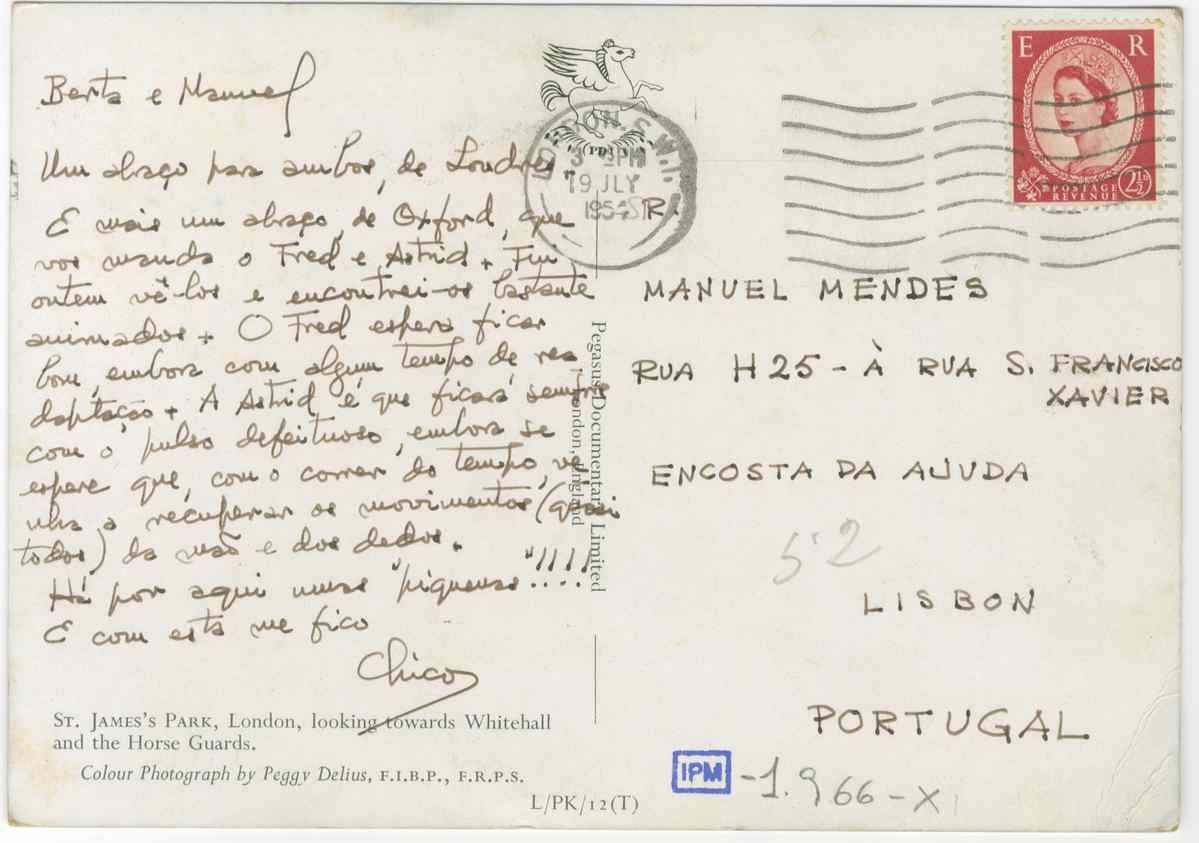 Berta e Manuel
Um abraço para ambos, de Londres.
E mais um abraço, de Oxford, que
vos manda o Fred e Astrid. Fui
ontem vê-los e encontrei-os bastante
animados. O Fred espera ficar
bom, embora com algum tempo de rea
daptação. A Astrid é que ficará sempre
com o pulso defeituoso, embora se
espere que, com o correr do tempo, ve
nha a recuperar os movimentos (quasi
todos) da mão e dos dedos.
Há por aqui umas "piquenas"!!!!
E com esta me fico
Chico
St. James's Park, London, looking towards Whitehall
and the Horse Guards.
Colour Photograph by Peggy Delius, F.I.B.P., F.R.P.S.
L/PK/12(T)
Pegasus Documentary Limited
London, England
PDL
LONDON. S.W.1.
3 PM
19 JLY
E R
POSTAGE
REVENUE
2½D
SR.
MANUEL MENDES
RUA H 25 - À RUA S. FRANCISCO
XAVIER
ENCOSTA DA AJUDA
52
LISBON
PORTUGAL
IPM -1.966-X